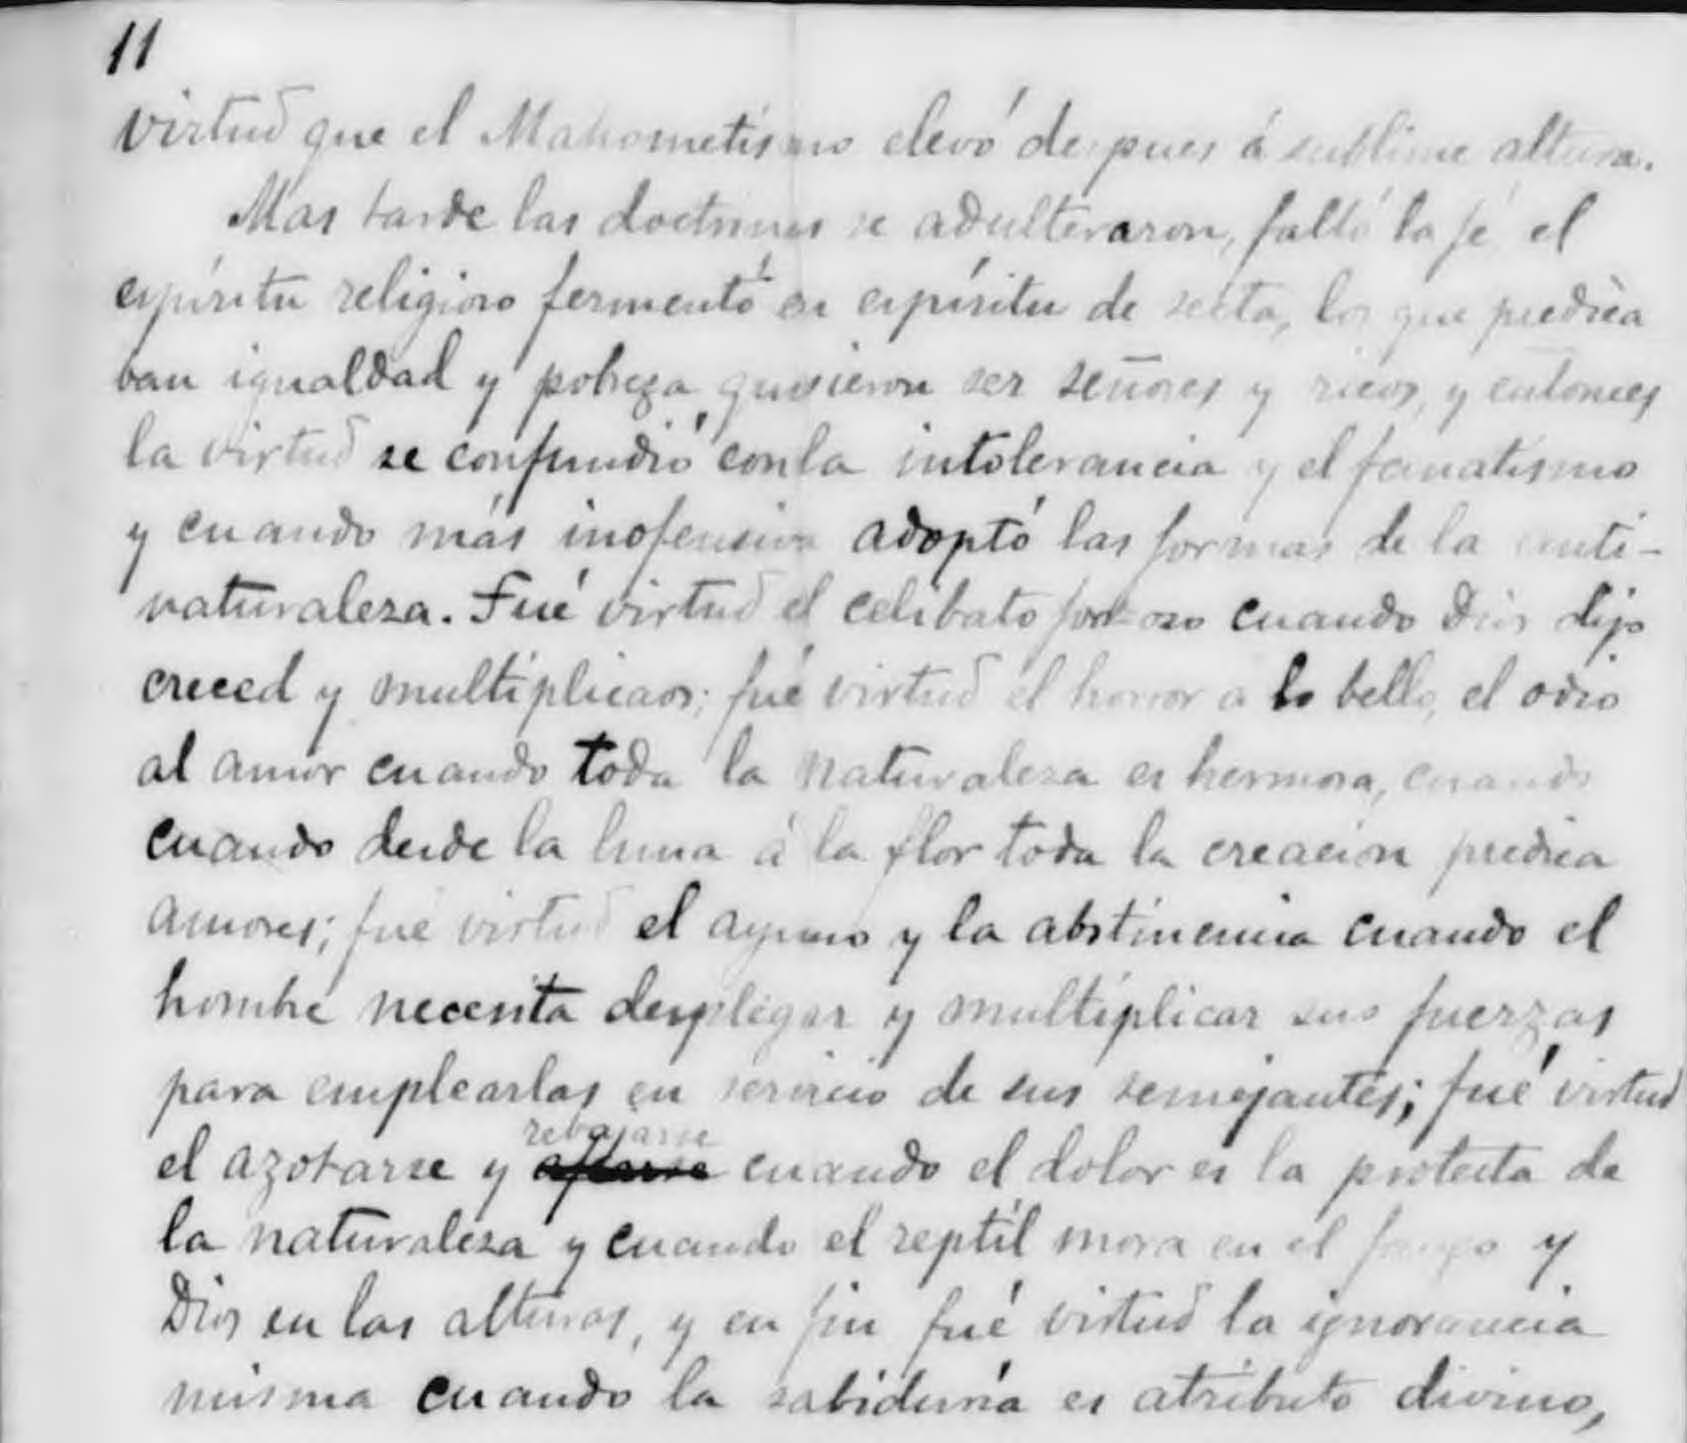 11
virtud que el Mahometismo elevó despues á sublime altura.
Mas tarde las doctrinas se adulteraron, faltó la fé, el
espíritu religioso fermentó en espíritu de secta, los que predica
ban igualdad y pobreza quisieron ser señores y ricos, y entonces
la virtud se confundió con la intolerancia y el fanatismo
y cuando más inofensiva adoptó las formas de la anti-
naturaleza. Fué virtud el celibato forzoso cuando Dios dijo
creced y multiplicaos; fué virtud el horror a lo bello, el odio
al amor cuando toda la naturaleza es hermosa, cuando
cuando desde la luna á la flor toda la creacion predica
amores; fué virtud el ayuno y la abstinencia cuando el
hombre necesita desplegar y multiplicar sus fuerzas
para emplearlas en servicio de sus semejantes; fué virtud
rebajarse
el azotarse y cuando el dolor es la protesta de
la naturaleza y cuando el reptil mora en el fango y
Dios en las alturas, y en fin fué virtud la ignorancia
misma cuando la sabiduría es atributo divino,